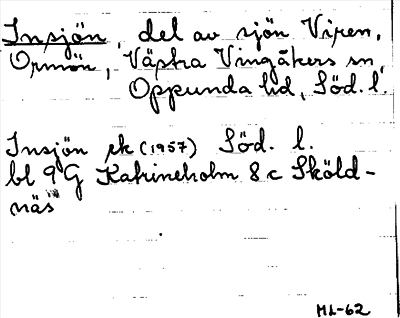 Insjön, del av sjön Viren,
Ormön, Västra Vingåkers sn,
Oppunda hd, Söd. l.
Insjön ek (1957) Söd. l.
bl 9 G Katrineholm 8 c Sköld-
näs
ML-62